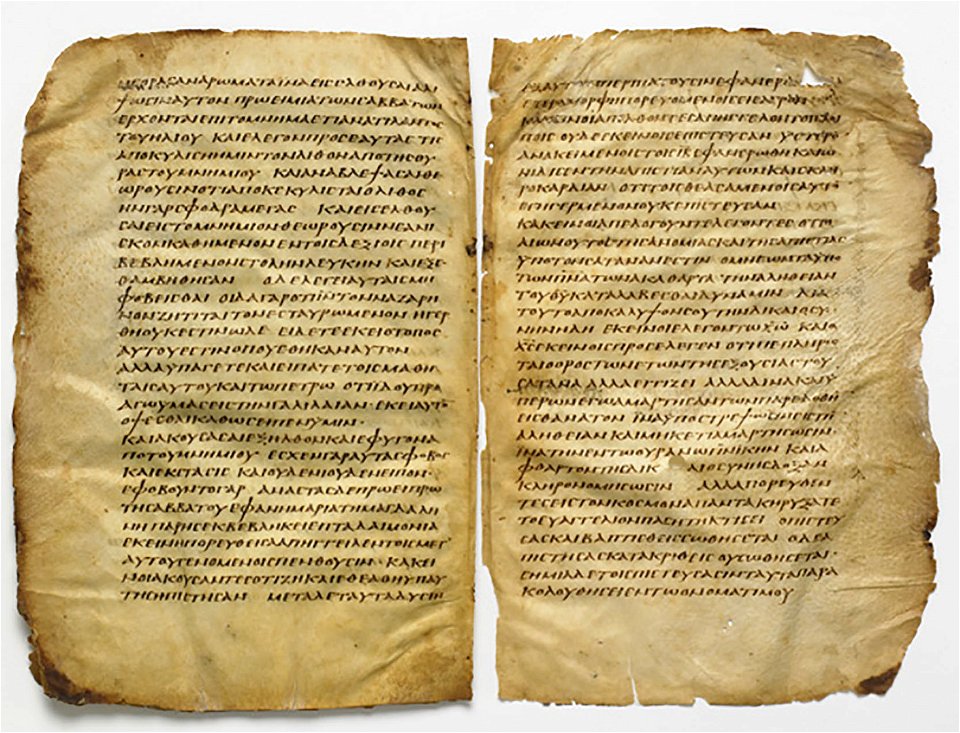 ΗΓΟΡΑCΑΝΑΡΩΜΑΤΑΪΝΑΕΙCΕΛΘΟΥCΑΙΑΛΙ
ΨΩCΙΝΑΥΤΟΝ ΠΡΩΕΙΜΙΑΤΩΝCΑΒΒΑΤΩΝ
ΕΡΧΟΝΤΑΙΕΠΙΤΟΜΝΗΜΑΕΤΙΑΝΑΤΙΛΑΝΤΟC
ΤΟΥΗΛΙΟΥ ΚΑΙΕΛΕΓΟΝΠΡΟCΕΑΥΤΑC ΤΙC
ΑΠΟΚΥΛΙCΗΗΜΙΝΤΟΝΛΙΘΟΝΑΠΟΤΗCΘΥ
ΡΑCΤΟΥΜΝΗΜΙΟΥ ΚΑΙΑΝΑΒΛΕΨΑCΑΙΘΕ
ΩΡΟΥCΙΝΟΤΙΑΠΟΚΕΚΥΛΙCΤΑΙΟΛΙΘΟC
ΗΝΓΑΡCΦΟΔΡΑΜΕΓΑC ΚΑΙΕΙCΕΛΘΟΥ
CΑΙΕΙCΤΟΜΝΗΜΙΟΝΘΕΩΡΟΥCΙΝΝΕΑΝΙ
CΚΟΝΚΑΘΗΜΕΝΟΝΕΝΤΟΙCΔΕΞΙΟΙC ΠΕΡΙ
ΒΕΒΛΗΜΕΝΟΝCΤΟΛΗΝΛΕΥΚΗΝ ΚΑΙΕΞΕ
ΘΑΜΒΗΘΗCΑΝ ΟΔΕΛΕΓΕΙΑΥΤΑΙCΜΗ
ΦΟΒΕΙCΘΑΙ ΟΙΔΑΓΑΡΟΤΙΙ̅Ν̅ΤΟΝΝΑΖΑΡΗ
ΝΟΝΖΗΤΙΤΑΙΤΟΝΕCΤΑΥΡΩΜΕΝΟΝ ΗΓΕΡ
ΘΗΟΥΚΕCΤΙΝΩΔΕ ΕΙΔΕΤΕΕΚΕΙΟΤΟΠΟC
ΑΥΤΟΥΕCΤΙΝΟΠΟΥΕΘΗΚΑΝΑΥΤΟΝ
ΑΛΛΑΥΠΑΓΕΤΕΚΑΙΕΙΠΑΤΕΤΟΙCΜΑΘΗ
ΤΑΙCΑΥΤΟΥΚΑΙΤΩΠΕΤΡΩ ΟΤΙΪΔΟΥΠΡΟ
ΑΓΩΥΜΑCΕΙCΤΗΝΓΑΛΙΛΑΙΑΝ·ΕΚΕΙΑΥΤΟ
ΟΨΕCΘΑΙΚΑΘΩCΕΙΠΕΝΥΜΙΝ·
ΚΑΙΑΚΟΥCΑCΑΙΕΞΗΛΘΟΝΚΑΙΕΦΥΓΟΝΑ
ΠΟΤΟΥΜΝΗΜΙΟΥ ΕCΧΕΝΓΑΡΑΥΤΑCΦΟΒΟC
ΚΑΙΕΚCΤΑCΙC ΚΑΙΟΥΔΕΝΙΟΥΔΕΝΕΙΠΟΝ·
ΕΦΟΒΟΥΝΤΟΓΑΡ ΑΝΑCΤΑCΔΕΠΡΩΕΙΠΡΩ
ΤΗCΑΒΒΑΤΟΥΕΦΑΝΗΜΑΡΙΑΤΗΜΑΓΔΑΛΗ
ΝΗΠΑΡΗCΕΚΒΕΒΛΗΚΕΙΕΠΤΑΔΑΙΜΟΝΙΑ
ΕΚΕΙΝΗΠΟΡΕΥΘΕΙCΑΠΗΓΓΕΙΛΕΝΤΟΙCΜΕΤ
ΑΥΤΟΥΓΕΝΟΜΕΝΟΙCΠΕΝΘΟΥCΙΝ·ΚΑΚΕΙ
ΝΟΙΑΚΟΥCΑΝΤΕCΟΤΙΖΗΚΑΙΕΘΕΑΘΗΥΠΑΥ
ΤΗCΗΠΙCΤΗCΑΝ ΜΕΤΑΔΕΤΑΥΤΑΔΥCΙΝ
ΕΞΑΥΤΩΝΠΕΡΙΠΑΤΟΥCΙΝΕΦΑΝΕΡΩΘΗΕΝ
ΕΤΕΡΑΜΟΡΦΗΠΟΡΕΥΟΜΕΝΟΙCΕΙCΑΓΡΟΝ
ΚΑΚΕΙΝΟΙΑΠΕΛΘΟΝΤΕCΑΠΗΓΓΕΛΟΝΤΟΙΛΟΙ
ΠΟΙC ΟΥΔΕΕΚΕΙΝΟΙCΕΠΙCΤΕΥCΑΝ ΥCΤΕΡΟ
ΑΝΑΚΕΙΜΕΝΟΙCΤΟΙCΙ̅Α̅ΕΦΑΝΕΡΩΘΗΚΑΙΩ
ΝΙΔΙCΕΝΤΗΝΑΠΙCΤΙΑΝΑΥΤΩΝΚΑΙCΚΛΗ
ΡΟΚΑΡΔΙΑΝ ΟΤΙΤΟΙCΘΕΑCΑΜΕΝΟΙCΑΥΤΟ
ΕΓΗΓΕΡΜΕΝΟΝΟΥΚΕΠΙCΤΕΥCΑΝ
ΚΑΚΕΙΝΟΙΑΠΕΛΟΓΟΥΝΤΕΛΕΓΟΝΤΕC ΟΤΙΟ
ΑΙΩΝΟΥΤΟCΤΗCΑΝΟΜΙΑCΚΑΙΤΗCΑΠΙCΤΙΑC
ΥΠΟΤΟΝCΑΤΑΝΑΝΕCΤΙΝ ΟΜΗΕΩΝΤΑΥΠΟ
ΤΩΝΠ̅Ν̅ΑΤΩΝΑΚΑΘΑΡΤΑΤΗΝΑΛΗΘΕΙΑΝ
ΤΟΥΘ̅Υ̅ΚΑΤΑΛΑΒΕCΘΑΙΔΥΝΑΜΙΝ ΔΙΑ
ΤΟΥΤΟΑΠΟΚΑΛΥΨΟΝCΟΥΤΗΝΔΙΚΑΙΟCΥ
ΝΗΝΗΔΗ ΕΚΕΙΝΟΙΕΛΕΓΟΝΤΩΧ̅Ω̅ ΚΑΙΟ
Χ̅C̅ΕΚΕΙΝΟΙCΠΡΟCΕΛΕΓΕΝ ΟΤΙΠΕΠΛΗΡΩ
ΤΑΙΟΟΡΟCΤΩΝΕΤΩΝΤΗCΕΞΟΥCΙΑCΤΟΥ
CΑΤΑΝΑ ΑΛΛΑΕΓΓΙΖΕΙ ΑΛΛΑΔΙΝΑΚΑΙΥ
ΠΕΡΩΝΕΓΩΑΜΑΡΤΗCΑΝΤΩΝΠΑΡΕΔΟΘΗ
ΕΙCΘΑΝΑΤΟΝ ΪΝΑΥΠΟCΤΡΕΨΩCΙΝΕΙCΤΗ
ΑΛΗΘΕΙΑΝ ΚΑΙΜΗΚΕΤΙΑΜΑΡΤΗCΩCΙΝ·
ΪΝΑΤΗΝΕΝΤΩΟΥΡΑΝΩΠ̅Ν̅ΙΚΗΝ ΚΑΙΑ
ΦΘΑΡΤΟΝΤΗCΔΙΚΑΙΟCΥΝΗCΔΟΞΑΝ
ΚΛΗΡΟΝΟΜΗCΩCΙΝ ΑΛΛΑΠΟΡΕΥΘΕΝ
ΤΕCΕΙCΤΟΝΚΟCΜΟΝΑΠΑΝΤΑΚΗΡΥΞΑΤΕ
ΤΟΕΥΑΓΓΕΛΙΟΝΠΑCΗΤΗΚΤΙCΕΙ ΟΠΙCΤΕΥ
CΑCΚΑΙΒΑΠΤΙCΘΕΙCCΩΘΗCΕΤΑΙ ΟΔΕΑ
ΠΙCΤΗCΑCΚΑΤΑΚΡΙΘΕΙC ΟΥCΩΘΗCΕΤΑΙ·
CΗΜΙΑΔΕΤΟΙCΠΙCΤΕΥCΑCΙΝΤΑΥΤΑΠΑΡΑ
ΚΟΛΟΥΘΗCΕΙΕΝΤΩΟΝΟΜΑΤΙΜΟΥ